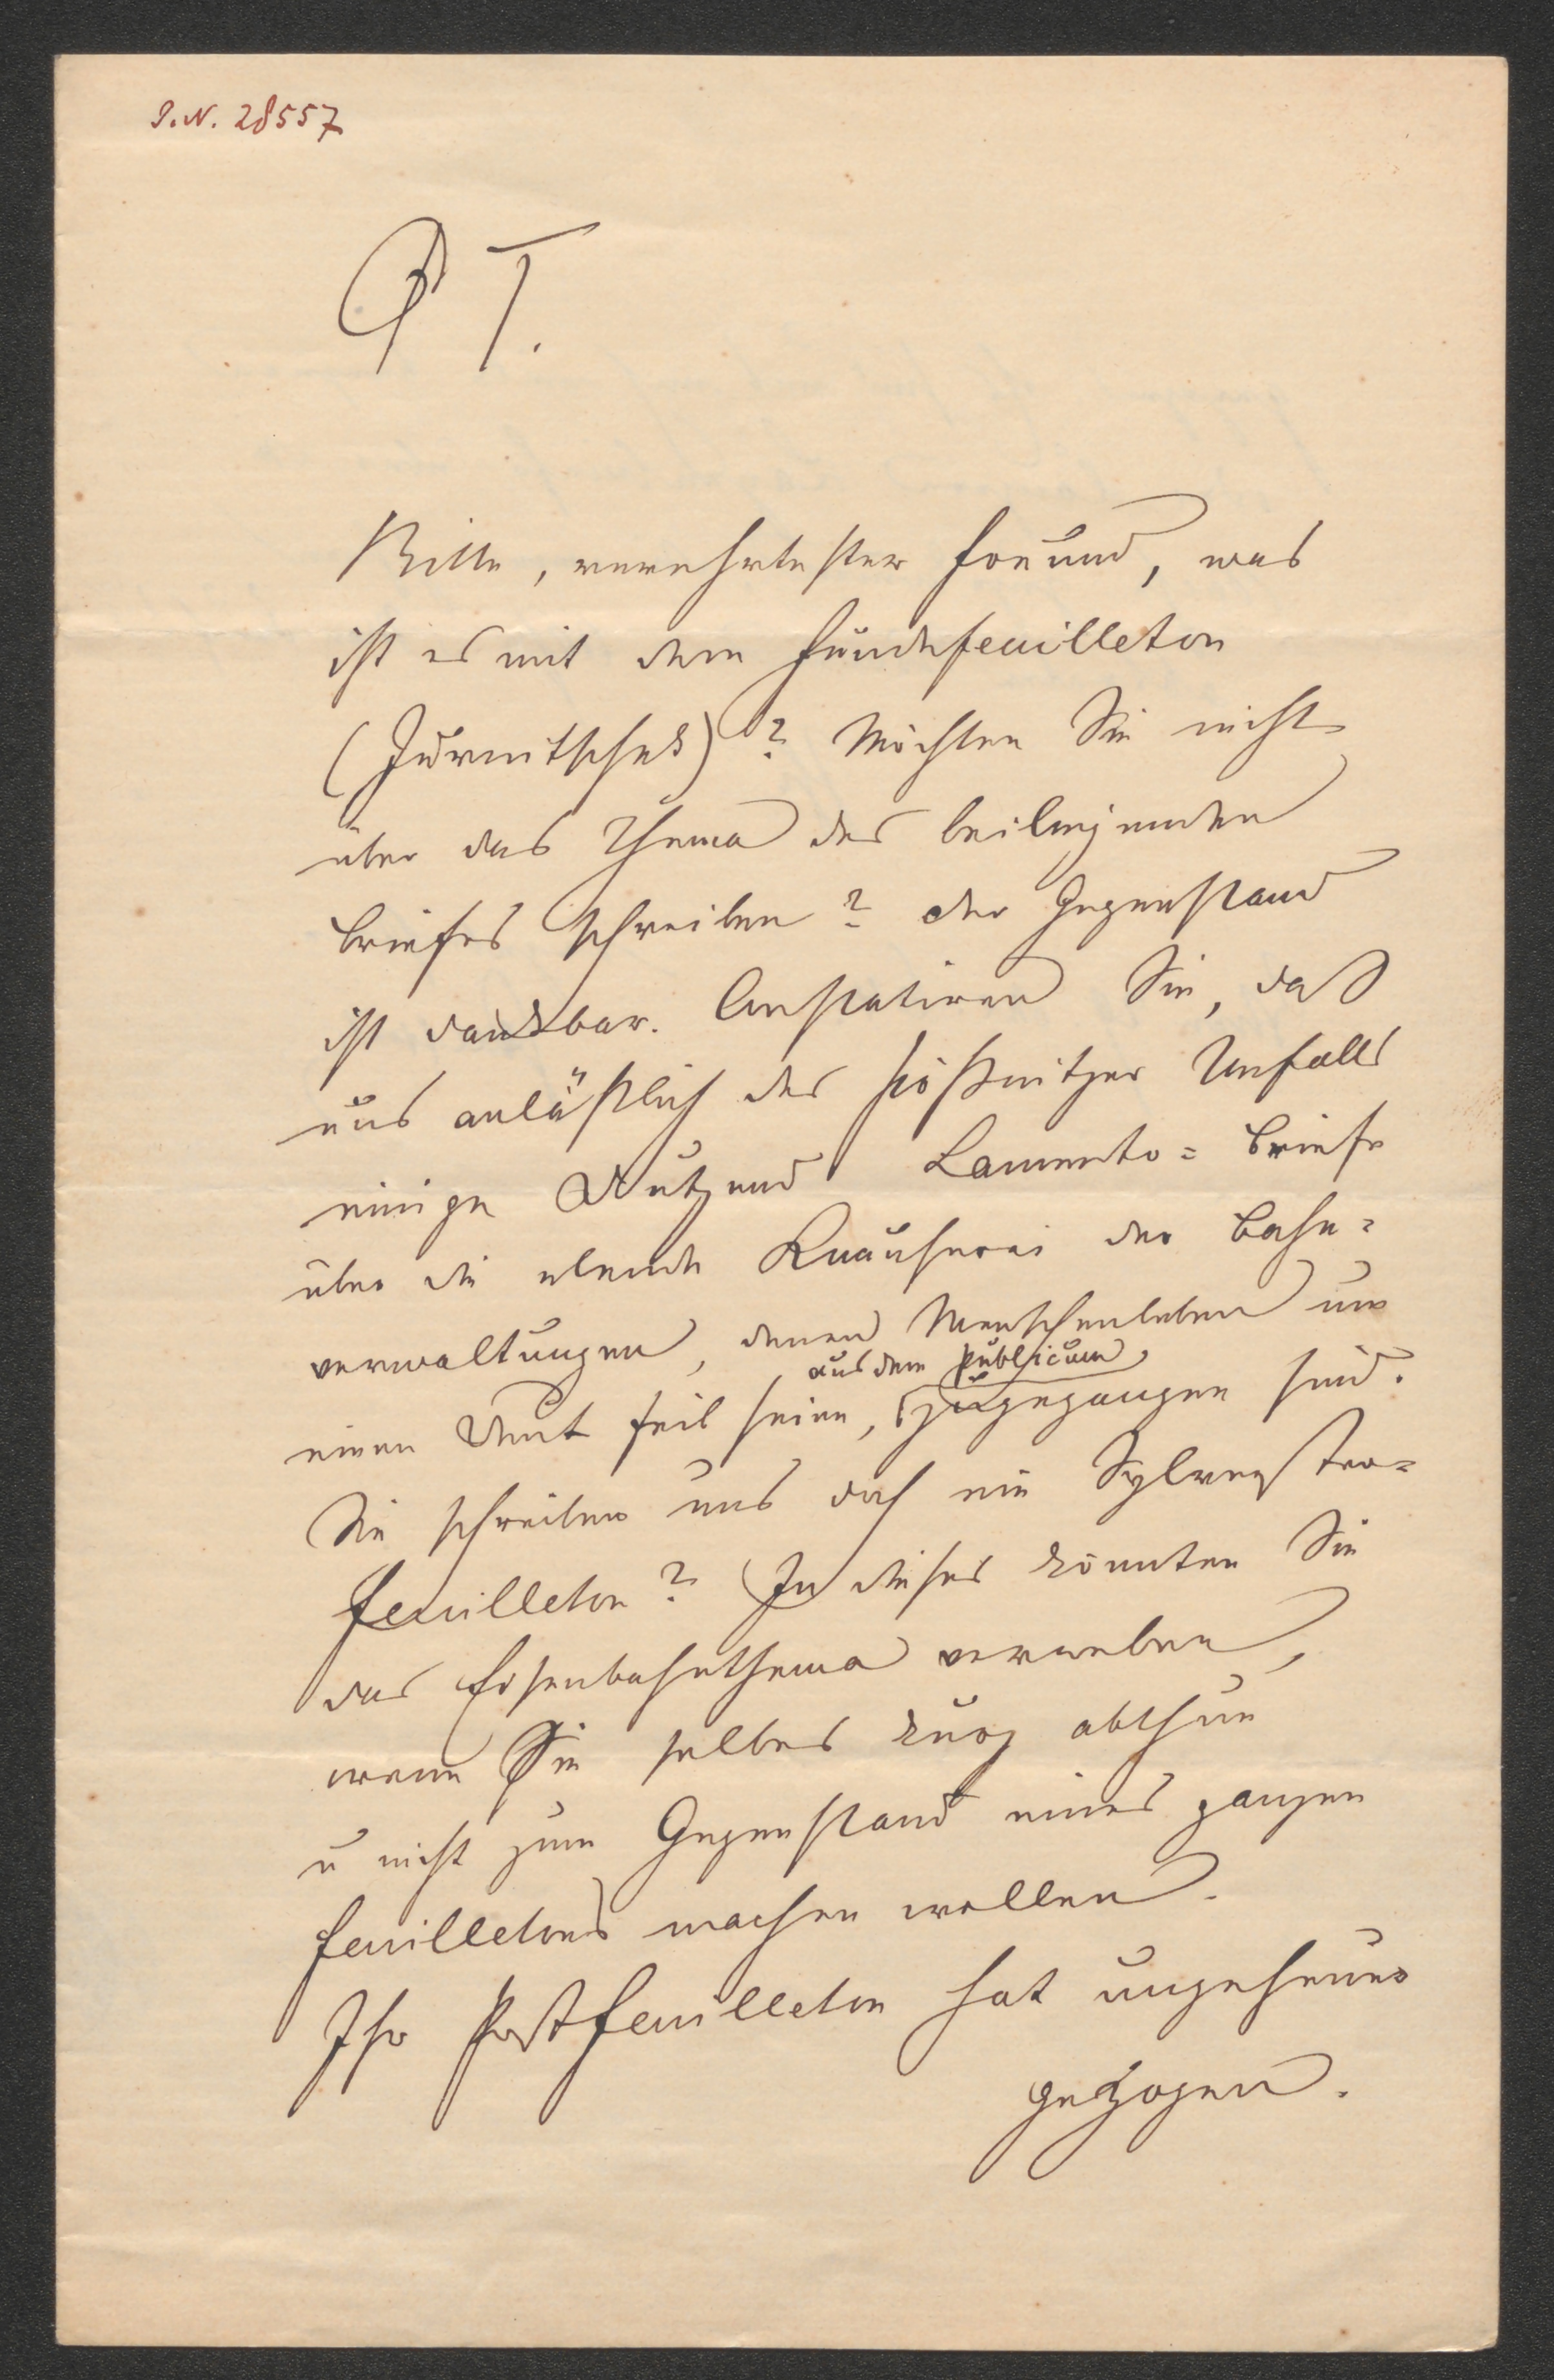 I.N. 28557
P T.
Bitte, verehrtester Freund, was
ist es mit dem Hundefeuilleton
(Jurmitschek)? Möchten Sie nicht
über das Thema des beiliegenden
Briefes schreiben? der Gegenstand
ist dankbar. Constatiren Sie, daß
uns anläßlich des Unfalls
einige Dutzend Lamento-Briefe
über die elende Knauserei der Bahn-
verwaltungen, denen Menschenleben um
aus dem Publicum
einen Deut feil seien, zugegangen sind.
Sie schreiben uns doch ein Sylvester-
feuilleton? In dieses könnten Sie
das Eisenbahnthema verweben,
wenn Sie selbes kurz abthun
u nicht zum Gegenstand eines ganzen
Feuilletons machen wollen.
Ihr Postfeuilleton hat ungeheuer
gezogen.